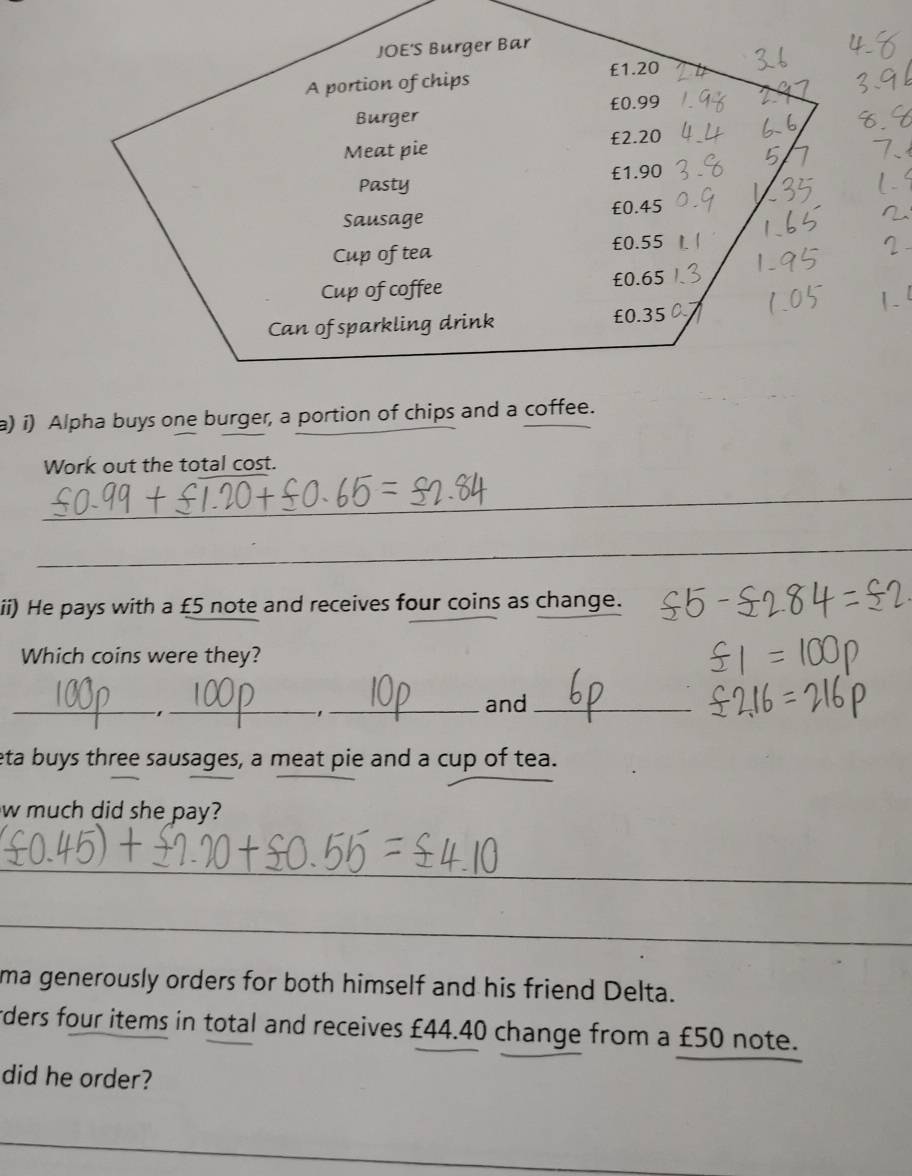 JOE'S Burger Bar
A portion of chips £1.20 2.4 3.6 4.8
Burger £0.99 1.98 2.97 3.96
Meat pie £2.20 4.4 6.6 8.8
Pasty £1.90 3.8 5.7 7.
Sausage £0.45 0.9 1.35 1.
Cup of tea £0.55 1.1 1.65 2.
Cup of coffee £0.65 1.3 1.95 2.
Can of sparkling drink £0.35 0.7 1.05 1.
a) i) Alpha buys one burger, a portion of chips and a coffee.
Work out the total cost.
£0.99 + £1.20 + £0.65 = £2.84
ii) He pays with a £5 note and receives four coins as change. £5 - £2.84 = £2.
Which coins were they? £1 = 100p
100p, 100p, 10p and 6p £2.16 = 216p
eta buys three sausages, a meat pie and a cup of tea.
w much did she pay?
(£0.45) + £2.20 + £0.55 = £4.10
ma generously orders for both himself and his friend Delta.
rders four items in total and receives £44.40 change from a £50 note.
did he order?